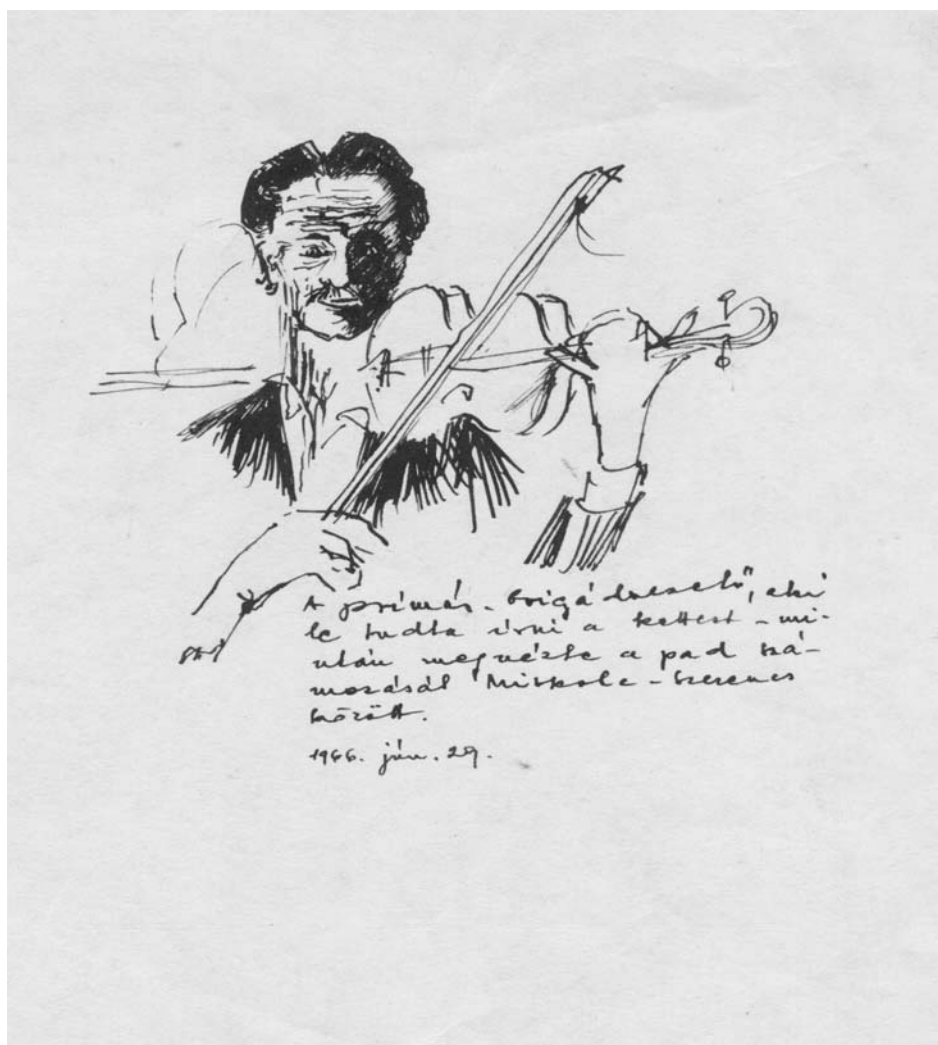 A prímás-brigádvezető, aki
le tudta írni a kettest – mi-
után megnézte a pad szá-
mozását Miskolc – Szerencs
között.
1966. jún. 29.